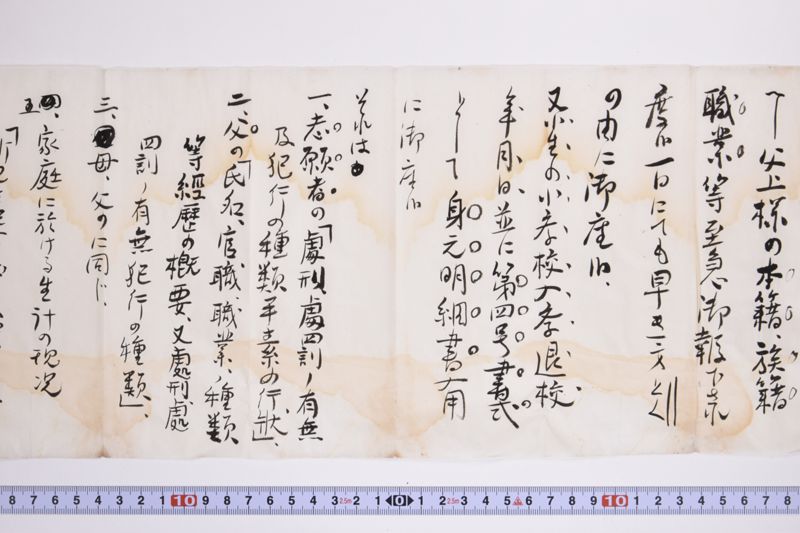 へ父上様の本籍、族籍
職業等至急御報下さ
度候一日にても早き方よく
の由に御座候、
又小生の小学校入学退校
年月日並に第四号書式
として身元明細書入用
に御座候
それは
一、志願者の「處刑、處罰ノ有無
及犯行の種類平素の行状」、
二、父の「氏名、官職、職業ノ種類
等經歴の概要、又處刑、處
罰ノ有無犯行の種類」、
三、母、父のに同じ、
五、家庭に於ける生計の現況